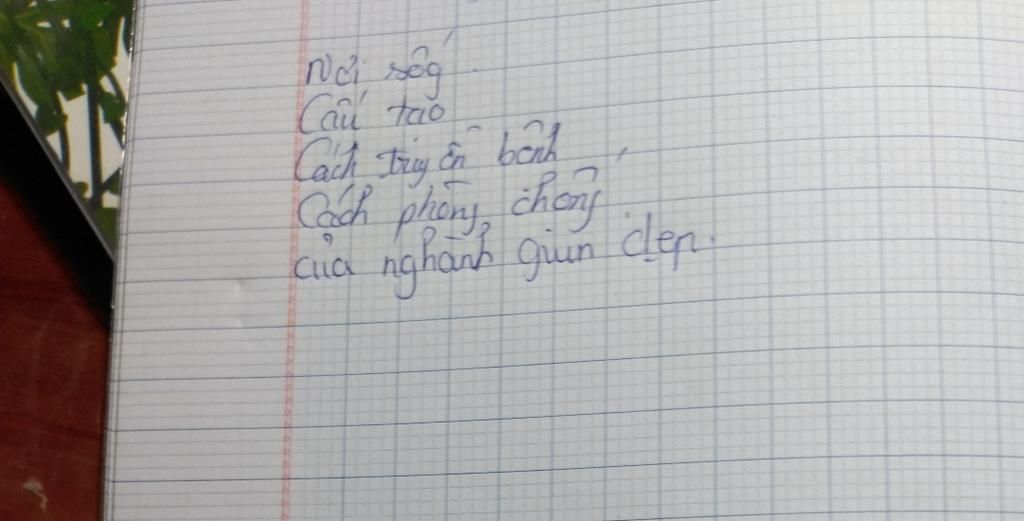 Nơi sốg
Cấu tạo
Cách truyền bệnh,
Cách phòng chống
của nghành giun dẹp.